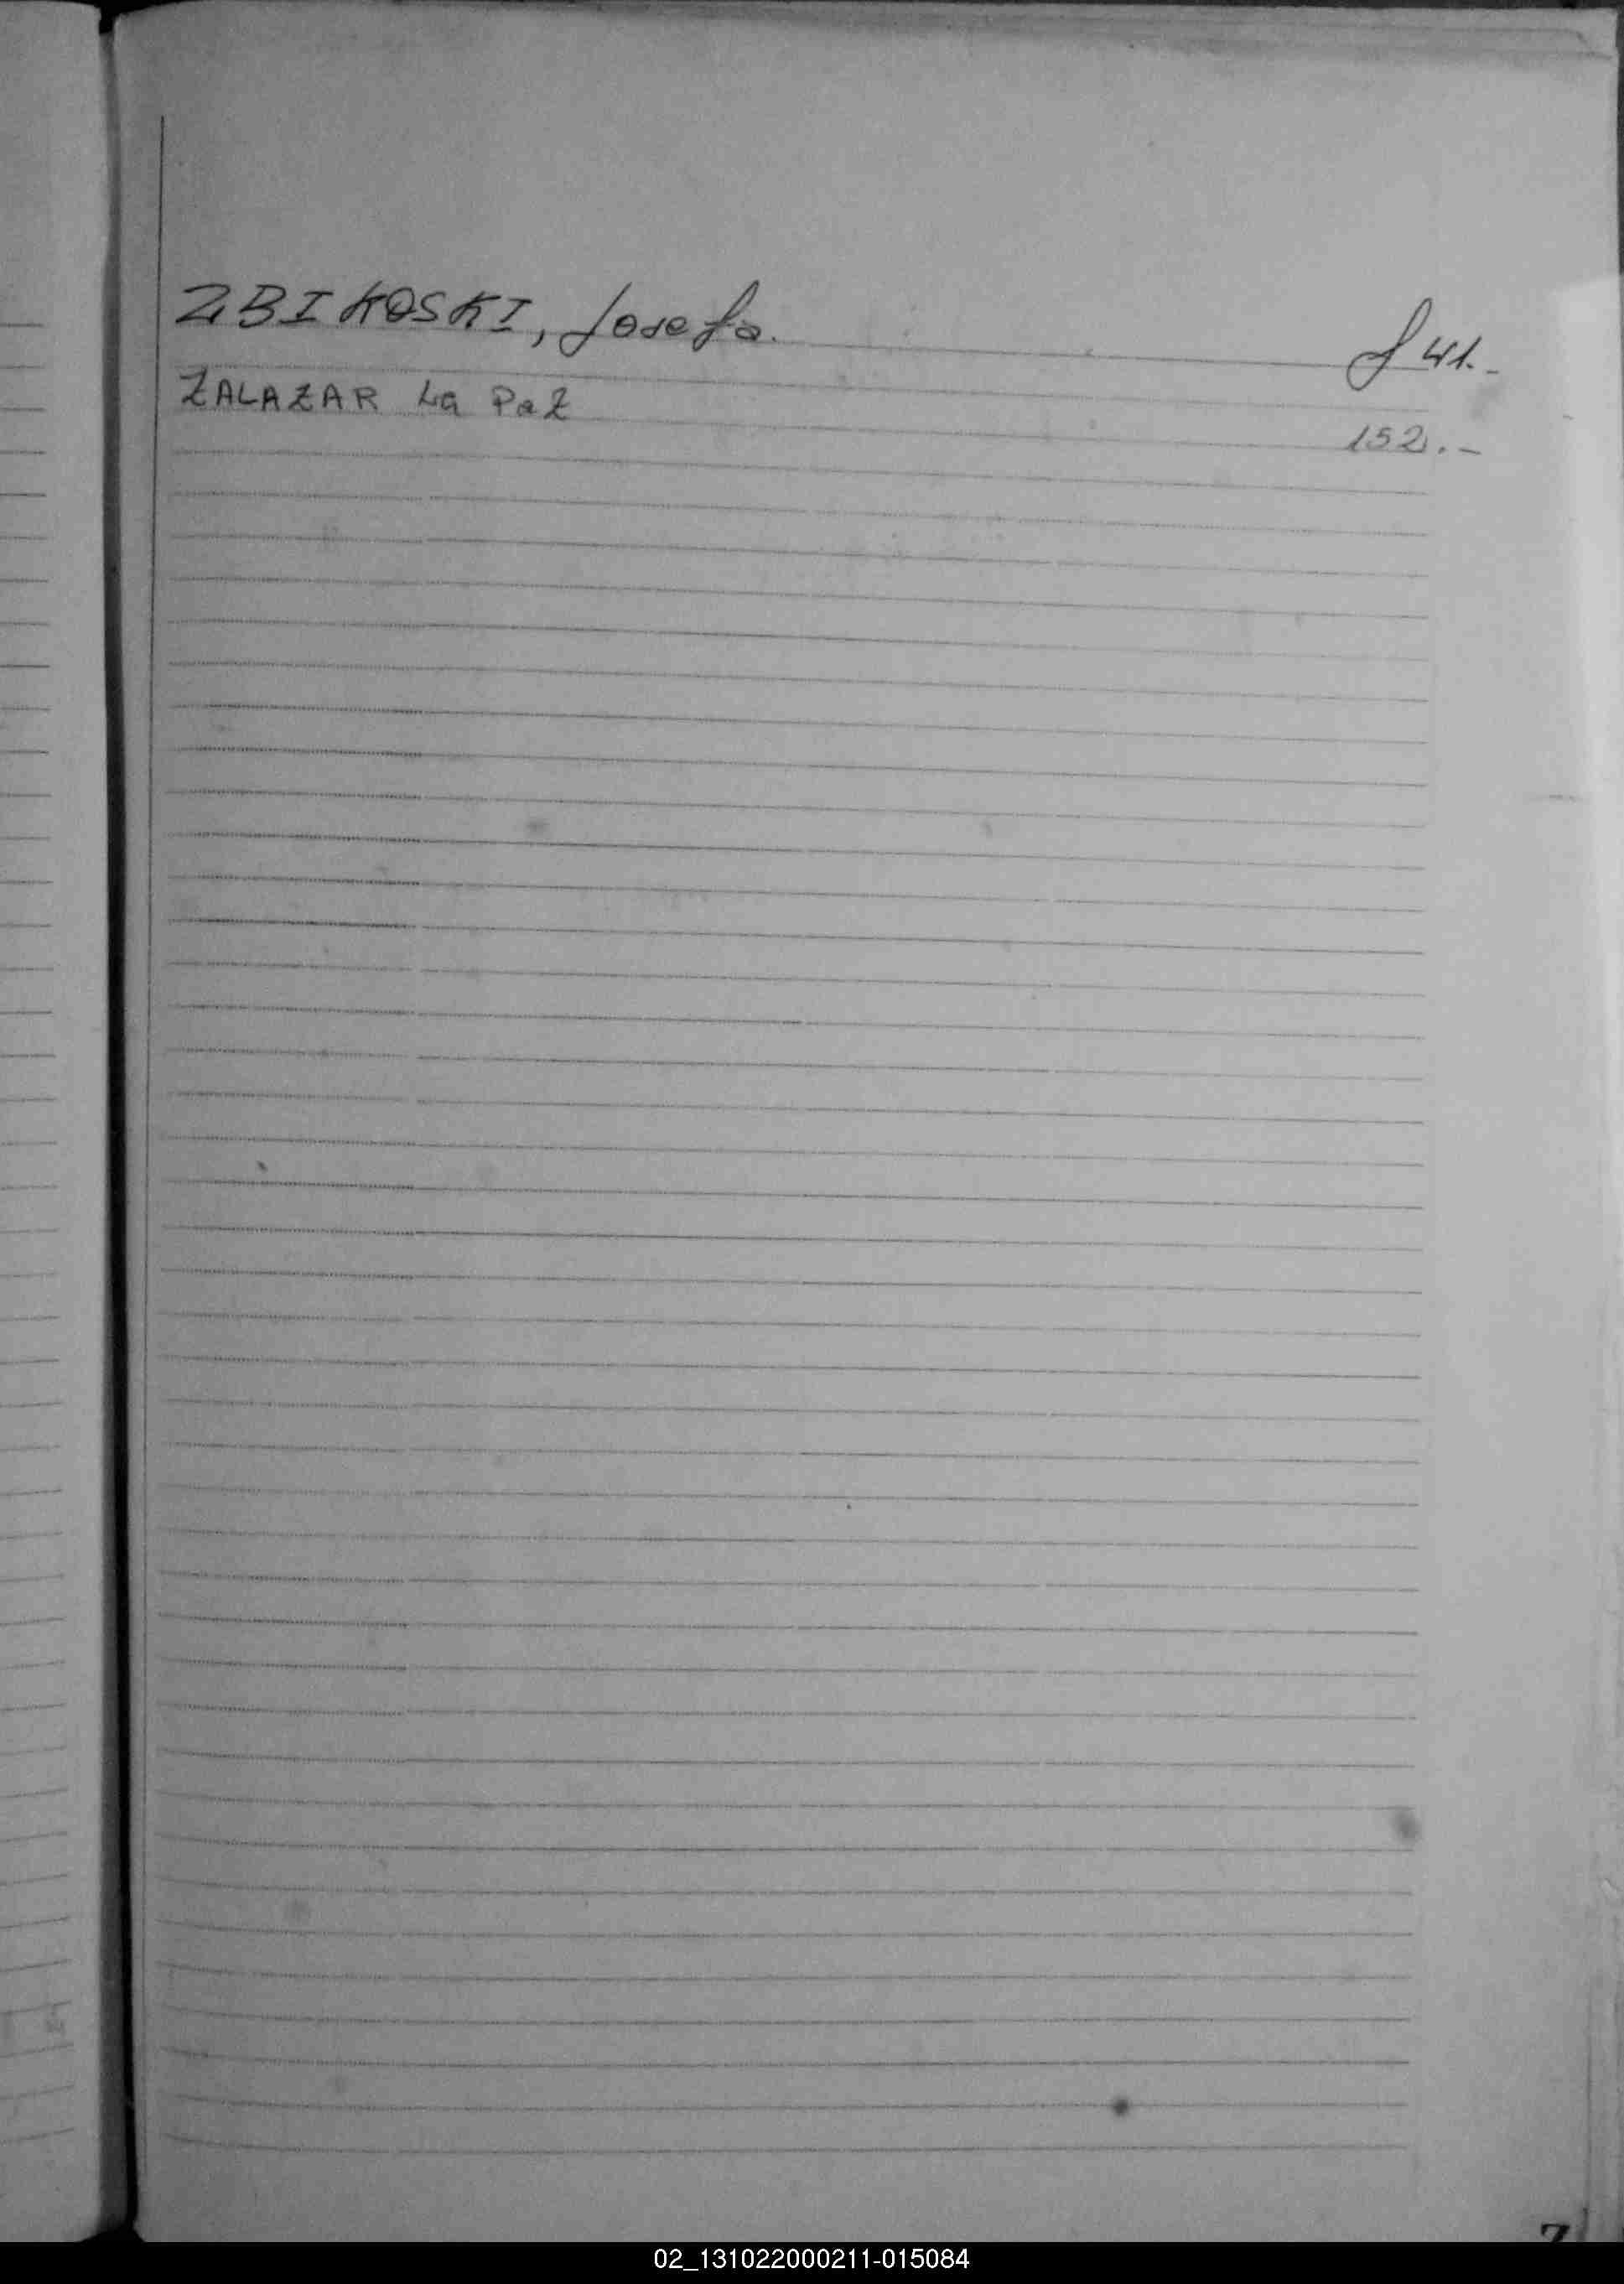 ZBIKOSKI, Josefa. f 41.-
ZALAZAR La Paz 152.-
Z
02_131022000211-015084